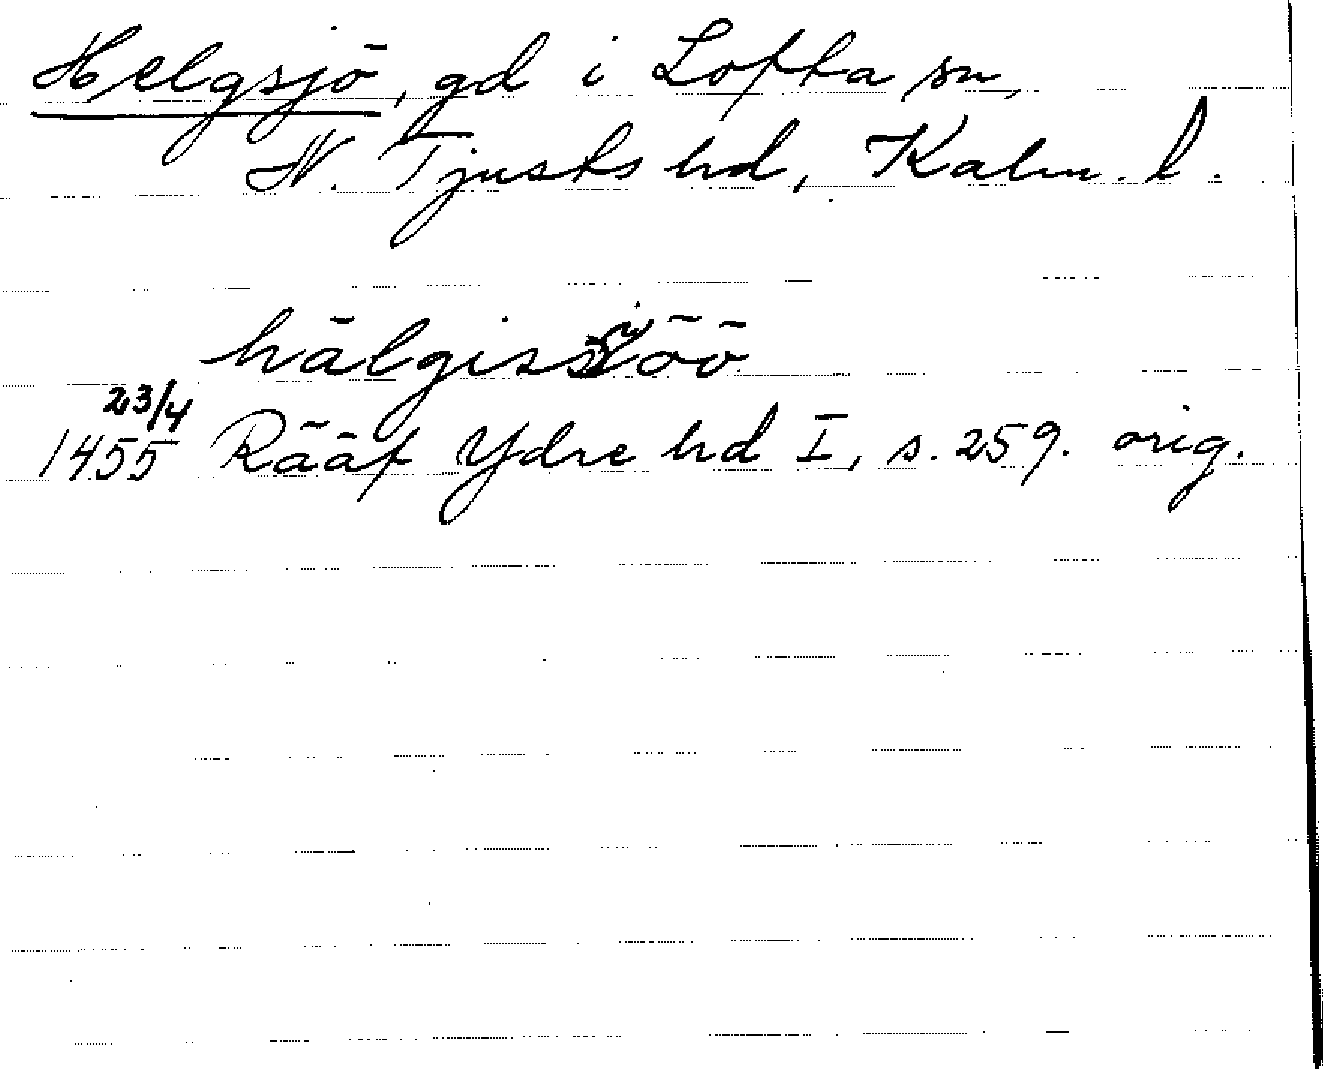 Helgsjö, gd i Lofta sn,
N. Tjusts hd, Kalm. l.
hälgissiöö
23/4
1455 Rääf Ydre hd I, s. 259. orig.